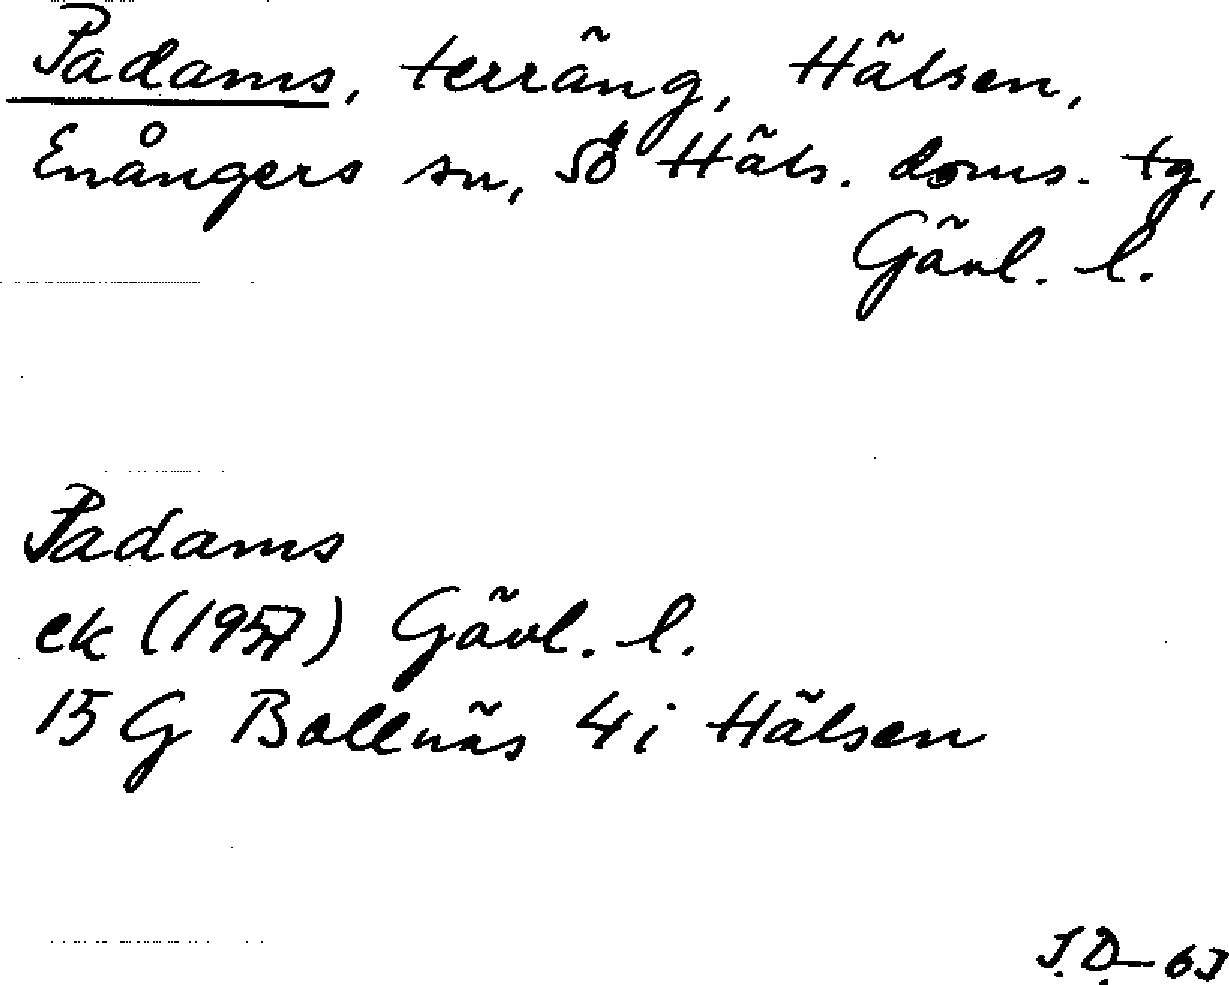 Padams, terräng, Hälsen,
Enångers sn, Sö Häls. doms. tg,
Gävl. l.
Padams
ek (1957) Gävl. l.
15 G Bollnäs 4i Hälsen